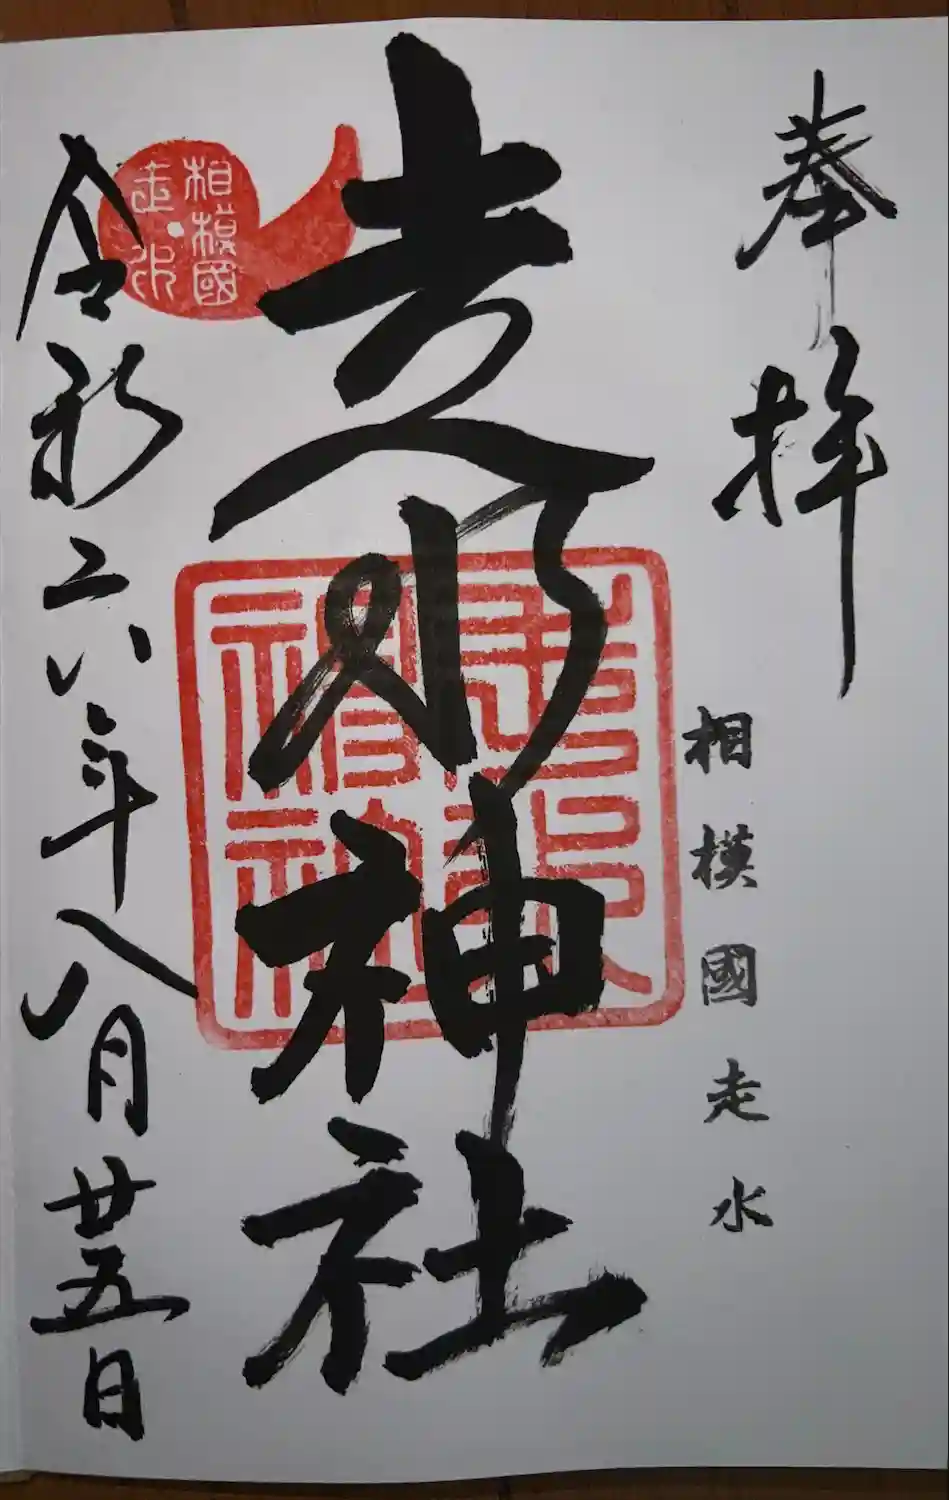 奉拝
相模國走水
走水神社
相模國
走水
令和六年八月廿五日